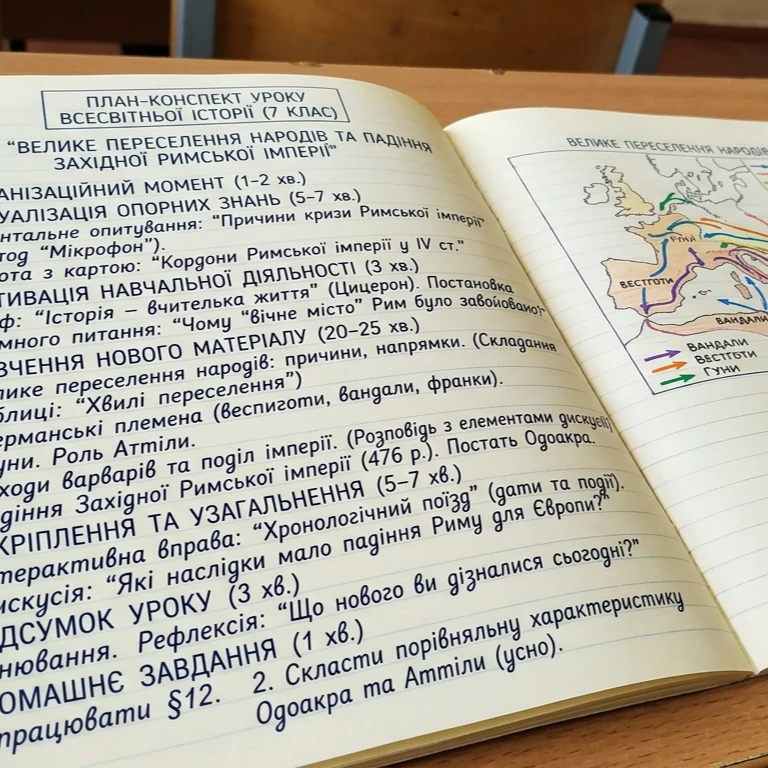 ПЛАН-КОНСПЕКТ УРОКУ
ВСЕСВІТНЬОЇ ІСТОРІЇ (7 КЛАС)
"ВЕЛИКЕ ПЕРЕСЕЛЕННЯ НАРОДІВ ТА ПАДІННЯ
ЗАХІДНОЇ РИМСЬКОЇ ІМПЕРІЇ"
АНІЗАЦІЙНИЙ МОМЕНТ (1–2 хв.)
УАЛІЗАЦІЯ ОПОРНИХ ЗНАНЬ (5–7 хв.)
нтальне опитування: "Причини кризи Римської імперії"
тод "Мікрофон").
ота з картою: "Кордони Римської імперії у IV ст."
ТИВАЦІЯ НАВЧАЛЬНОЇ ДІЯЛЬНОСТІ (3 хв.)
ф: "Історія – вчителька життя" (Цицерон). Постановка
много питання: "Чому "вічне місто" Рим було
ВЧЕННЯ НОВОГО МАТЕРІАЛУ (20–25 хв.)
лике переселення народів: причини, напрямки. (Складання
блиці: "Хвилі переселення")
ерманські племена (веспиготи, вандали, франки).
уни. Роль Аттіли.
ходи варварів та поділ імперії. (Розповідь з елементами дискусії)
діння Західної Римської імперії (476 р.). Постать Одоакра.
КРІПЛЕННЯ ТА УЗАГАЛЬНЕННЯ (5–7 хв.)
терактивна вправа: "Хронологічний поїзд" (дати та події).
искусія: "Які наслідки мало падіння Риму для Європи?"
ДСУМОК УРОКУ (3 хв.)
нювання. Рефлексія: "Що нового ви дізналися сьогодні?"
ОМАШНЄ ЗАВДАННЯ (1 хв.)
працювати §12. 2. Скласти порівняльну характеристику
Одоакра та Аттіли (усно).
ВЕЛИКЕ ПЕРЕСЕЛЕННЯ НАРОДІВ
ВЕСТГОТИ
ВАНДАЛИ
ВАНДАЛИ
ВЕСТГОТИ
ГУНИ